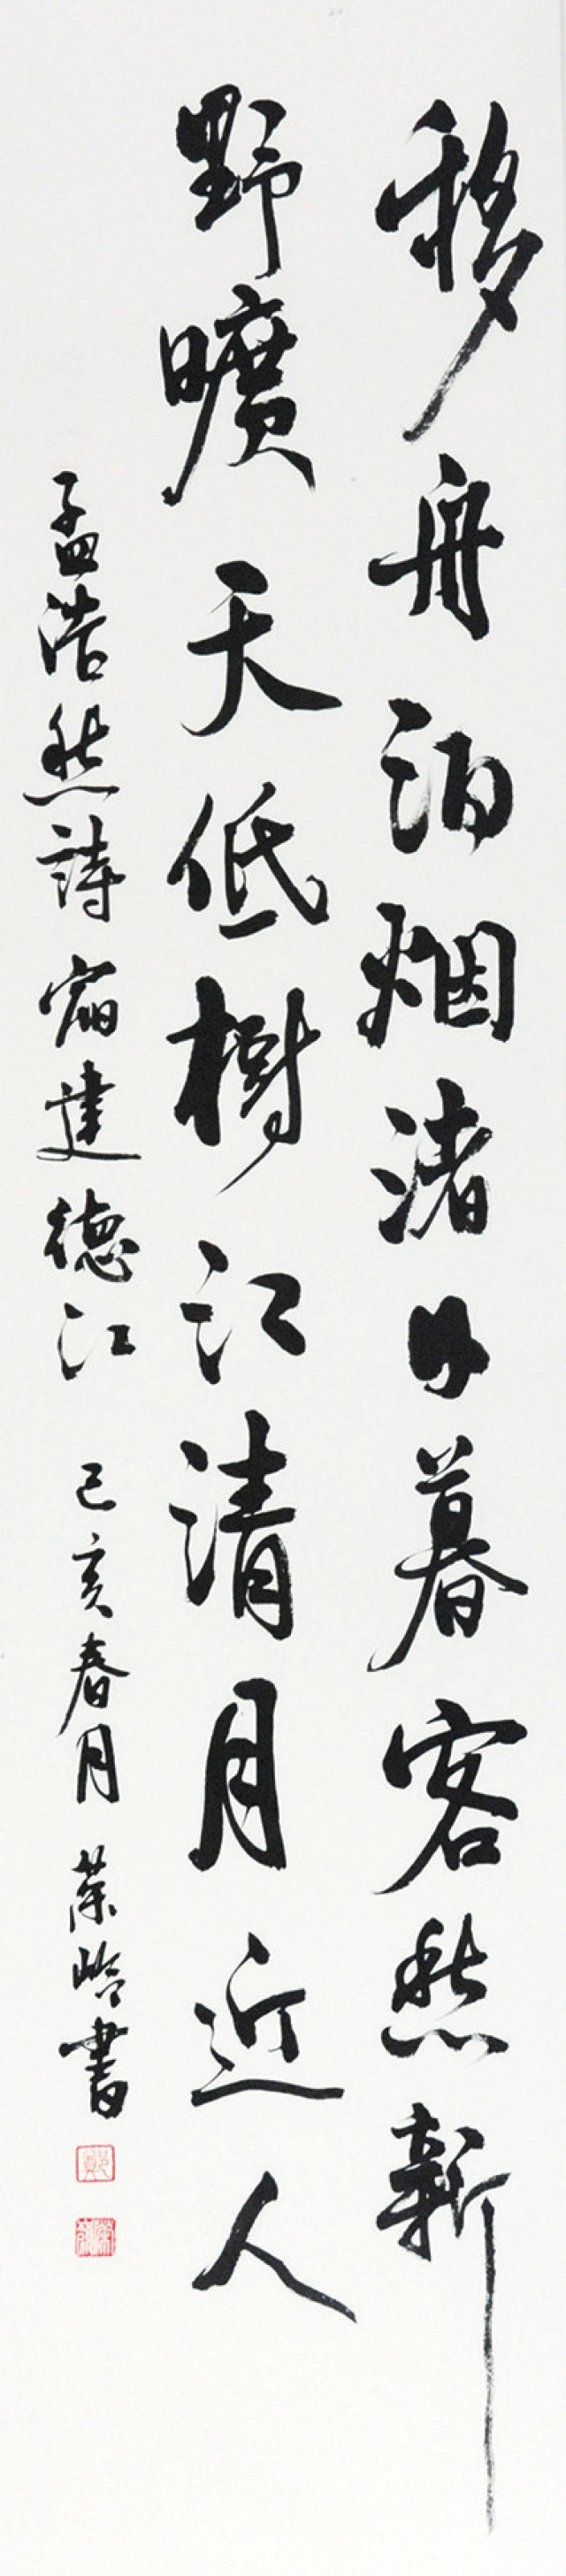 移舟泊烟渚日暮客愁新
野曠天低樹江清月近人
孟浩然詩宿建德江 己亥春月 榮岭書
鄭